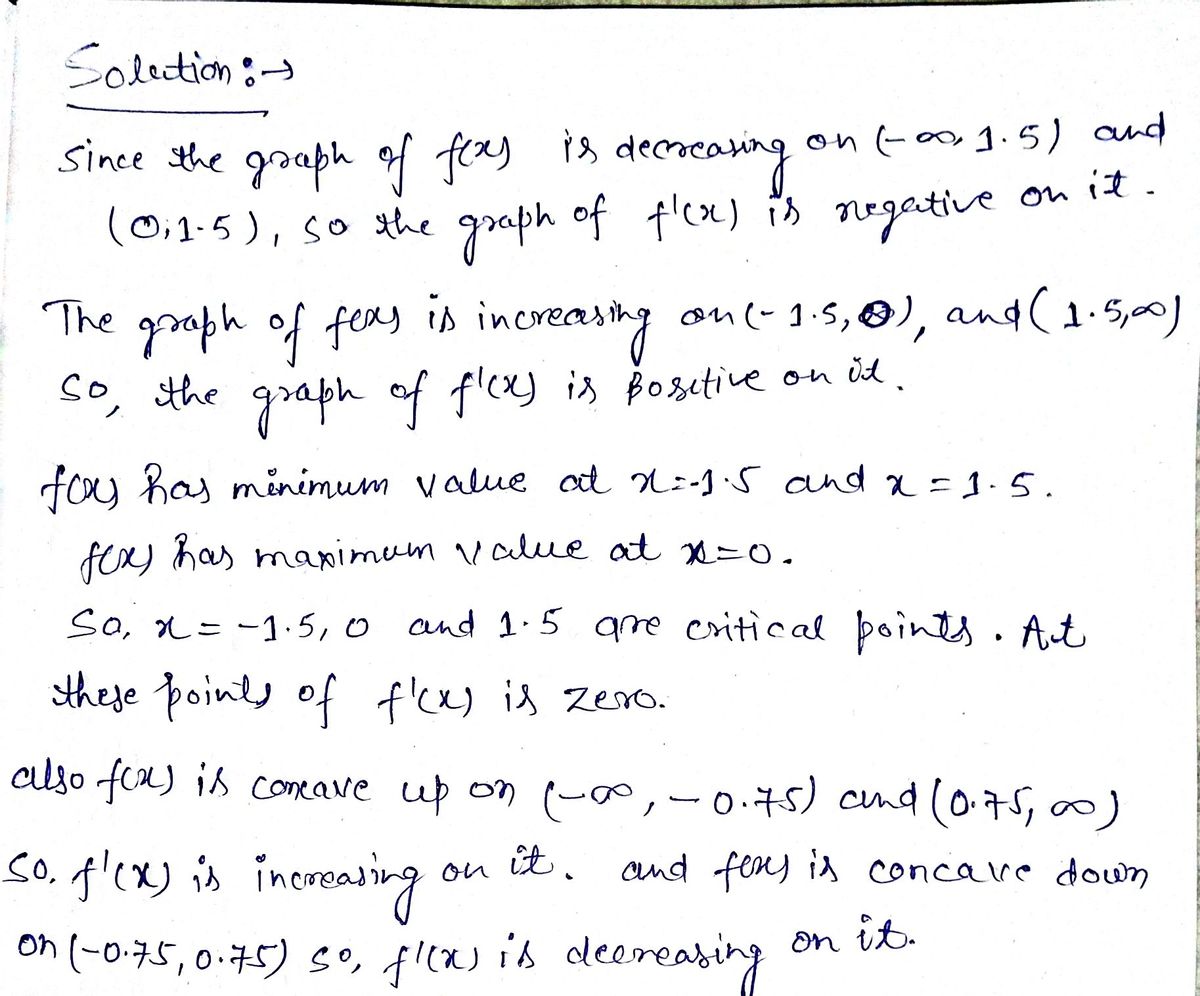 Solution :→
Since the graph of f(x) is decreasing on (-∞, 1.5) and
(0, 1.5), so the graph of f'(x) is negative on it.
The graph of f(x) is increasing on (-1.5, 0), and (1.5, ∞)
So, the graph of f'(x) is Positive on it.
f(x) has minimum value at x=-1.5 and x = 1.5.
f(x) has maximum value at x=0.
So, x = -1.5, 0 and 1.5 are critical points. At
these points of f'(x) is zero.
also f(x) is concave up on (-∞, -0.75) and (0.75, ∞)
So, f'(x) is increasing on it. and f(x) is concave down
on (-0.75, 0.75) so, f'(x) is decreasing on it.